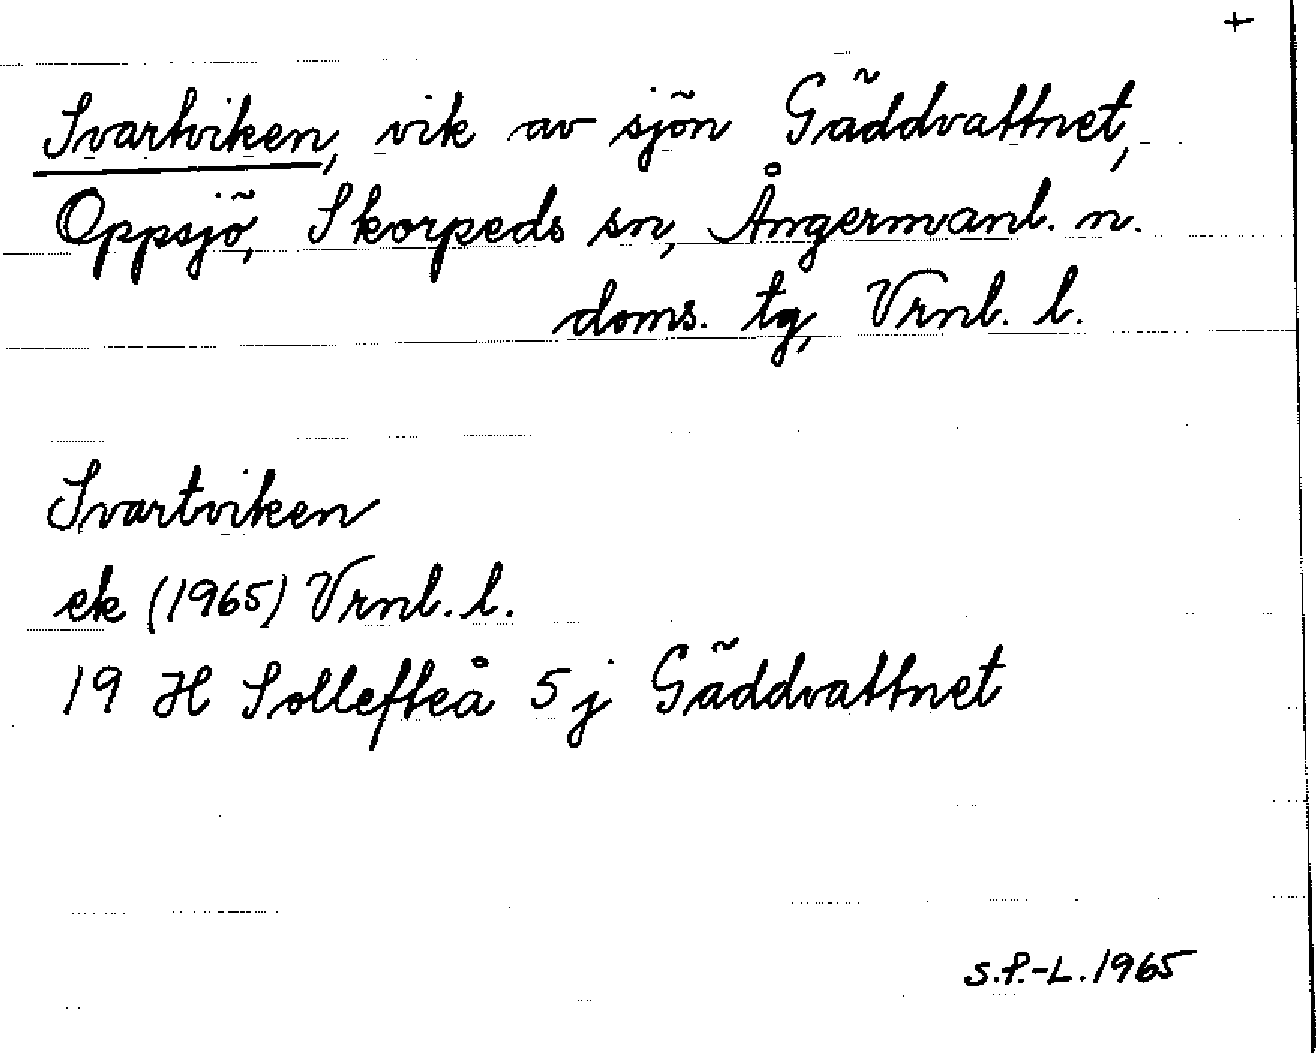 +
Svartviken, vik av sjön Gäddvattnet,
Oppsjö, Skorpeds sn, Ångermanl. n.
doms. tg, Vrnl. l.
Svartviken
ek (1965) Vrnl. l.
19 H Sollefteå 5 j Gäddvattnet
S.P.-L. 1965